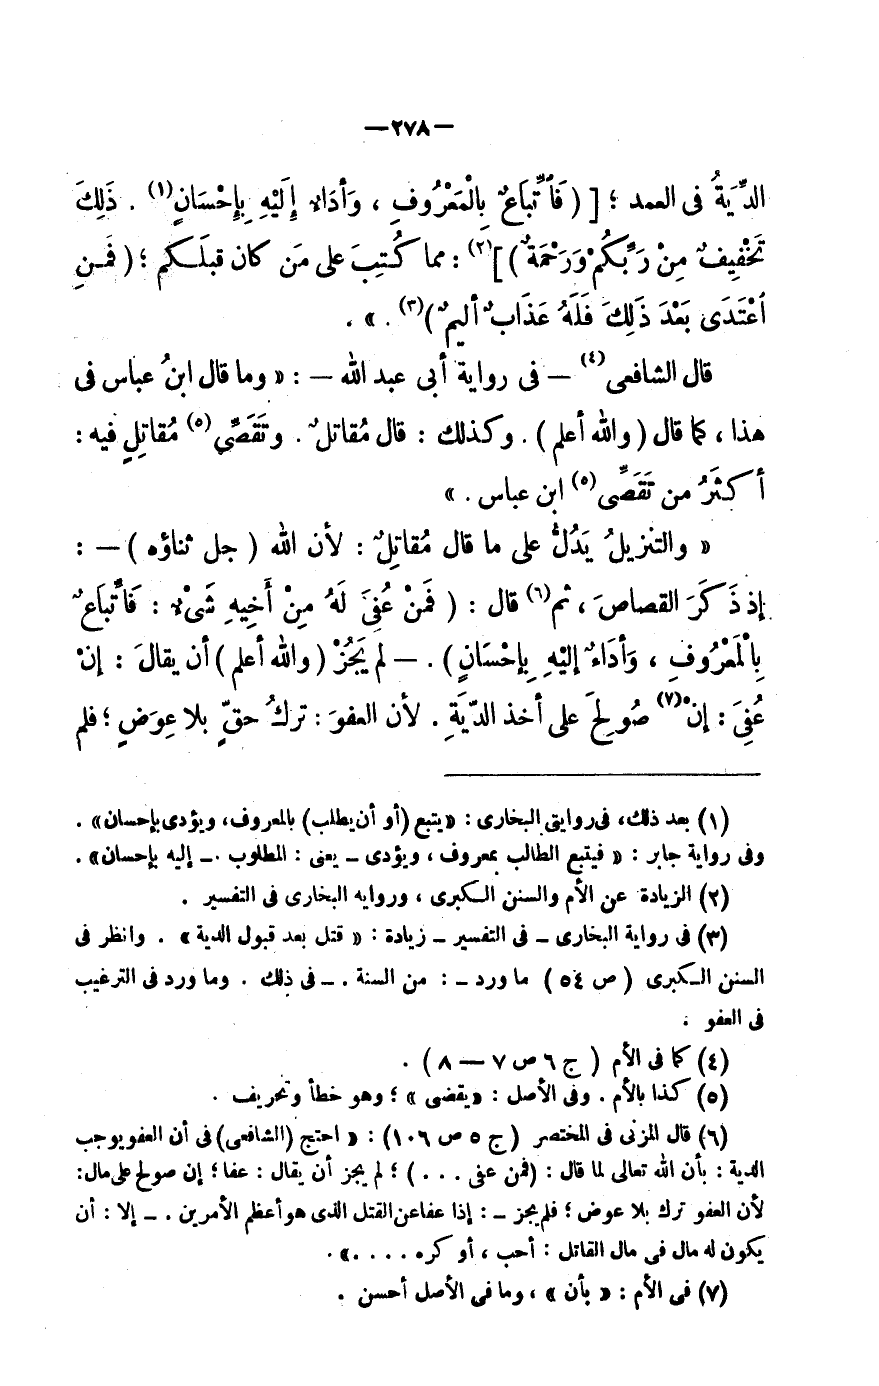 —٢٧٨—
الدِّيَةُ فى العمد ؛ [ ( فَاُتِّبَاعٌ بِالْمَعْرُوفِ ، وَأَدَاءٌ إِلَيْهِ بِإِحْسَانٍ(١) . ذَلِكَ
تَخْفِيفٌ مِنْ رَبِّكُمْ وَرَحْمَةٌ ) ](٢) : مما كُتِبَ على مَن كان قبلَكم ؛ ( فَمَنِ
اُعْتَدَى بَعْدَ ذَلِكَ فَلَهُ عَذَابٌ أليمٌ )(٣) . » .
قال الشافعى(٤) — فى رواية أبى عبد الله — : « وما قال ابنُ عباس فى
هذا ، كما قال ( والله أعلم ) . وكذلك : قال مُقاتلٌ . وتَقَصِّى(٥) مُقاتلٍ فيه :
أكثَرُ من تَقَصِّى(٥) ابن عباس . »
« والتنزيلُ يَدُلُّ على ما قال مُقاتِلٌ : لأن الله ( جل ثناؤه ) — :
إذ ذَكَرَ القصاصَ ، ثم(٦) قال : ( فَمَنْ عُفِىَ لَهُ مِنْ أَخِيهِ شَىْءٌ : فَاُتِّبَاعٌ
بِالْمَعْرُوفِ ، وَأَدَاءٌ إِلَيْهِ بِإحْسَانٍ ) . — لم يَجُزْ ( والله أعلم ) أن يقالَ : إنْ
عُفِىَ : إنْ(٧) صُولِحَ على أخذ الدِّيَةِ . لأن العفوَ : تركُ حقٍّ بلا عِوَضٍ ؛ فلم
(١) بعد ذلك ، فى روايتى البخارى : « يتبع (أو أن يطلب) بالمعروف ، ويؤدى بإحسان» .
وفى رواية جابر : « فيتبع الطالب بمعروف ، ويؤدى ــ يعنى : المطلوب . ــ إليه بإحسان» .
(٢) الزيادة عن الأم والسنن الكبرى ، وروايه البخارى فى التفسير .
(٣) فى رواية البخارى ــ فى التفسير ــ زيادة : « قتل بعد قبول الدية » . وانظر فى
السنن الكبرى ( ص ٥٤ ) ما ورد ــ : من السنة . ــ فى ذلك . وما ورد فى الترغيب
فى العفو .
(٤) كما فى الأم ( ج ٦ ص ٧ — ٨ ) .
(٥) كذا بالأم . وفى الأصل : «يقضى » ؛ وهو خطأ وتحريف .
(٦) قال المزنى فى المختصر ( ج ٥ ص ١٠٦ ) : « احتج (الشافعى) فى أن العفو يوجب
الدية : بأن الله تعالى لما قال : (فمن عفى . . . ) ؛ لم يجز أن يقال : عفا ؛ إن صولح على مال :
لأن العفو ترك بلا عوض ؛ فلم يجز ــ : إذا عفا عن القتل الذى هو أعظم الأمرين . ــ إلا : أن
يكون له مال فى مال القاتل : أحب ، أو كره . . . .» .
(٧) فى الأم : « بأن » ، وما فى الأصل أحسن .